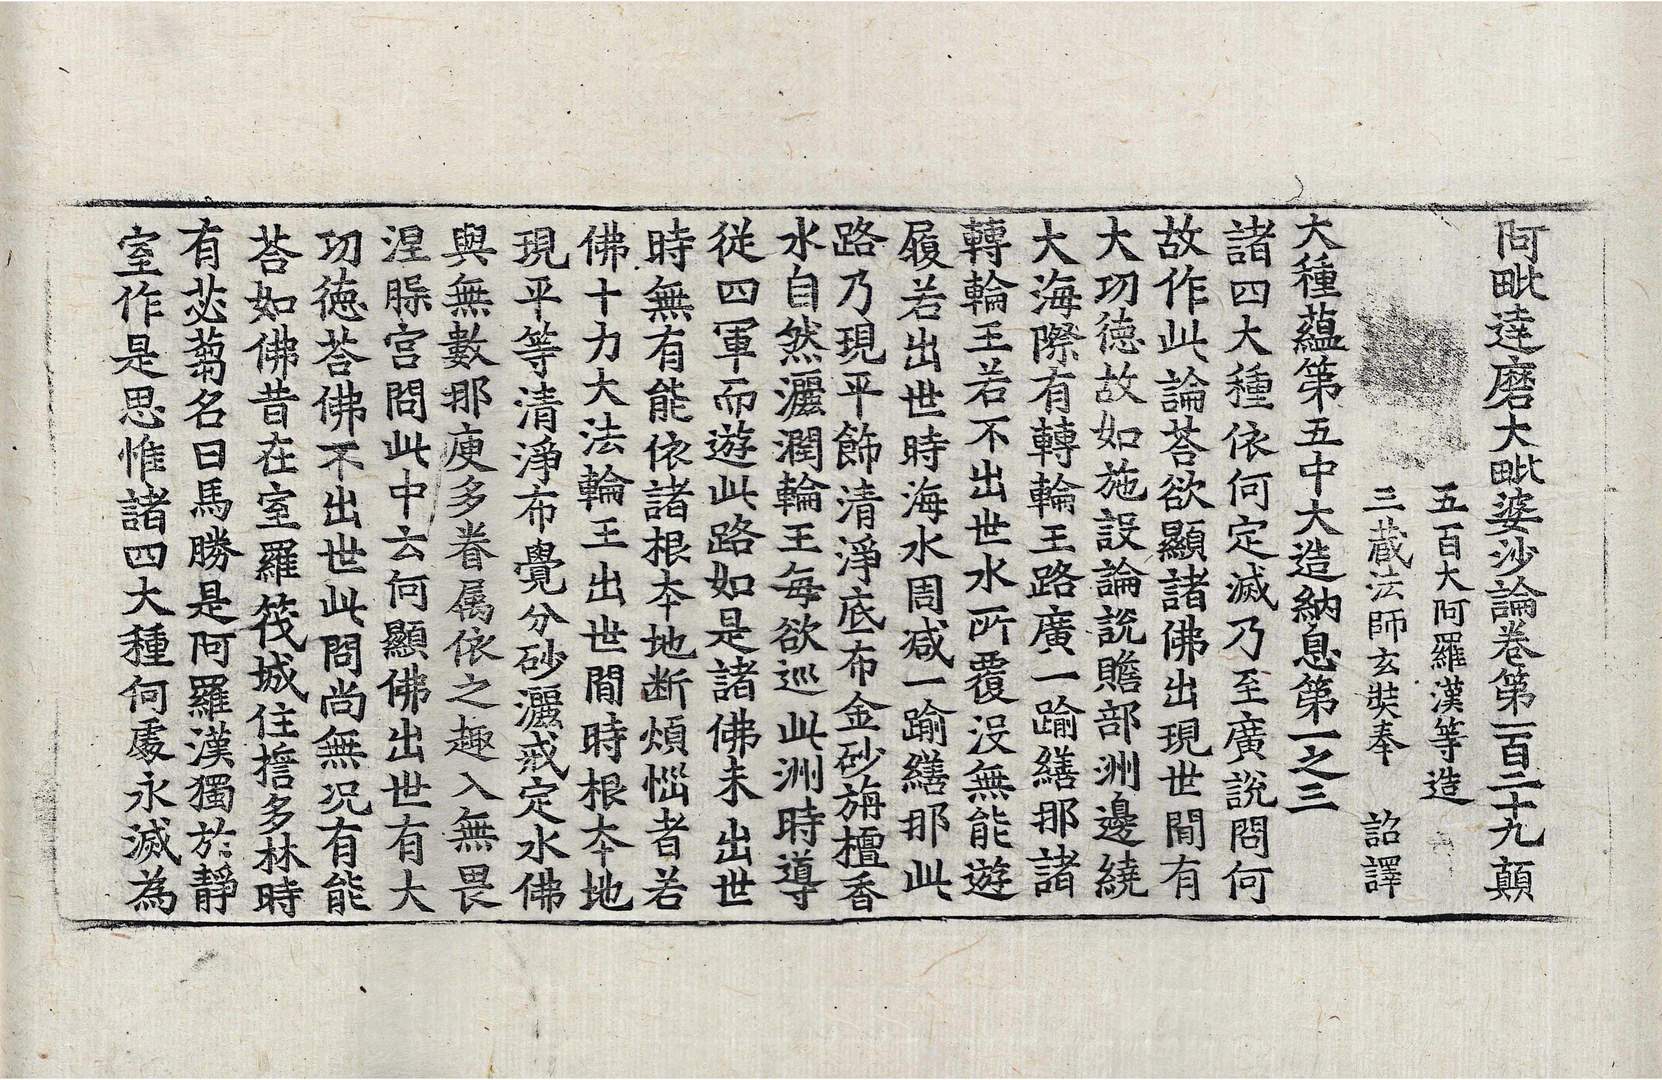 阿毗達磨大毗婆沙論卷第一百二十九 顛
五百大阿羅漢等造
三藏法師玄奘奉 詔譯
大種蘊第五中大造納息第一之三
諸四大種依何定滅乃至廣說問何
故作此論荅欲顯諸佛出現世間有
大功德故如施設論說贍部洲邊繞
大海際有轉輪王路廣一踰繕那諸
轉輪王若不出世水所覆沒無能遊
履若出世時海水周減一踰繕那此
路乃現平飾清淨底布金砂旃檀香
水自然灑潤輪王每欲巡此洲時導
從四軍而遊此路如是諸佛未出世
時無有能依諸根本地斷煩惱者若
佛十力大法輪王出世間時根本地
現平等清淨布覺分砂灑戒定水佛
與無數那庾多眷屬依之趣入無畏
涅槃宮問此中云何顯佛出世有大
功德荅佛不出世此問尚無况有能
荅如佛昔在室羅筏城住誓多林時
有苾蒭名曰馬勝是阿羅漢獨於靜
室作是思惟諸四大種何處永滅為